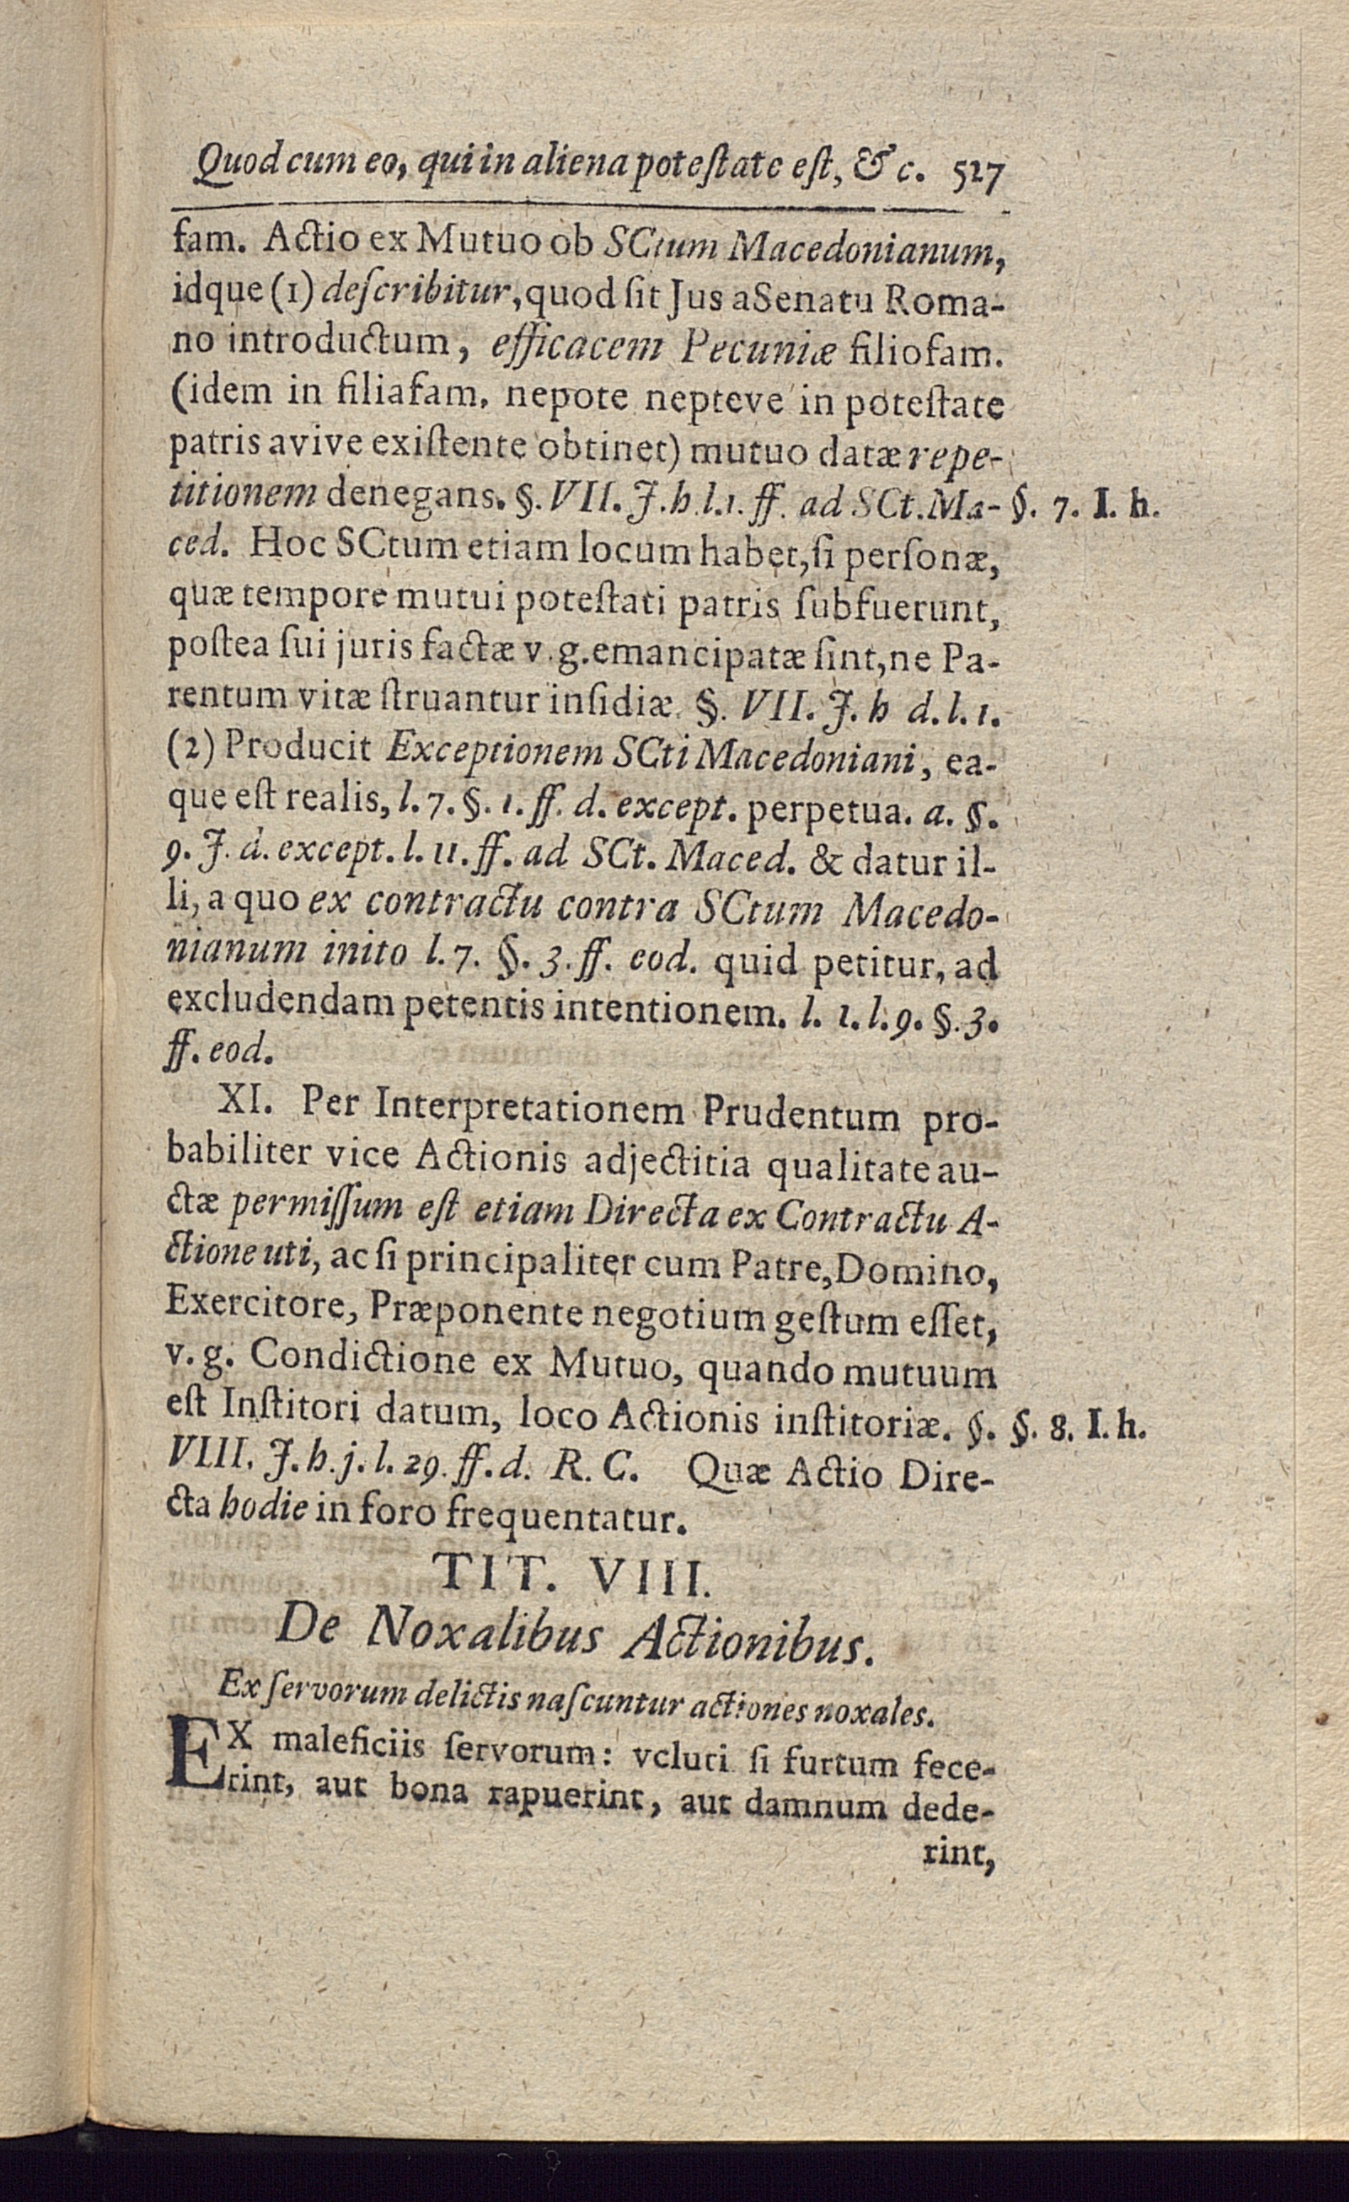 Quod cum eo, qui in aliena poteſtate eſt, & c. 527
fam. Actio ex Mutuo ob SCtum Macedonianum,
idque (1) deſcribitur, quod ſit Jus a Senatu Roma-
no introductum, efficacem Pecuniæ filiofam.
(idem in filiafam. nepote nepteve in poteſtate
patris avive exiſtente obtinet) mutuo datæ repe-
titionem denegans. §. VII. J. h. l. 1. ff. ad SCt. Ma- §. 7. I. h.
ced. Hoc SCtum etiam locum habet, ſi perſonæ,
quæ tempore mutui poteſtati patris ſubfuerunt,
poſtea ſui juris factæ v. g. emancipatæ ſint, ne Pa-
rentum vitæ ſtruantur inſidiæ. §. VII. J. h d. l. 1.
(2) Producit Exceptionem SCti Macedoniani, ea-
que eſt realis, l. 7. §. 1. ff. d. except. perpetua. a. §.
9. J. d. except. l. 11. ff. ad SCt. Maced. & datur il-
li, a quo ex contractu contra SCtum Macedo-
nianum inito l. 7. §. 3. ff. eod. quid petitur, ad
excludendam petentis intentionem. l. 1. l. 9. §. 3.
ff. eod.
XI. Per Interpretationem Prudentum pro-
babiliter vice Actionis adjectitia qualitate au-
ctæ permiſſum eſt etiam Directa ex Contractu A-
ctione uti, ac ſi principaliter cum Patre, Domino,
Exercitore, Præponente negotium geſtum eſſet,
v. g. Condictione ex Mutuo, quando mutuum
eſt Inſtitori datum, loco Actionis inſtitoriæ. §. §. 8. I. h.
VIII. J. h. j. l. 29. ff. d. R. C. Quæ Actio Dire-
cta hodie in foro frequentatur.
TIT. VIII.
De Noxalibus Actionibus.
Ex ſervorum delictis naſcuntur actiones noxales.
EX maleficiis ſervorum: veluti ſi furtum fece-
rint, aut bona rapuerint, aut damnum dede-
rint,